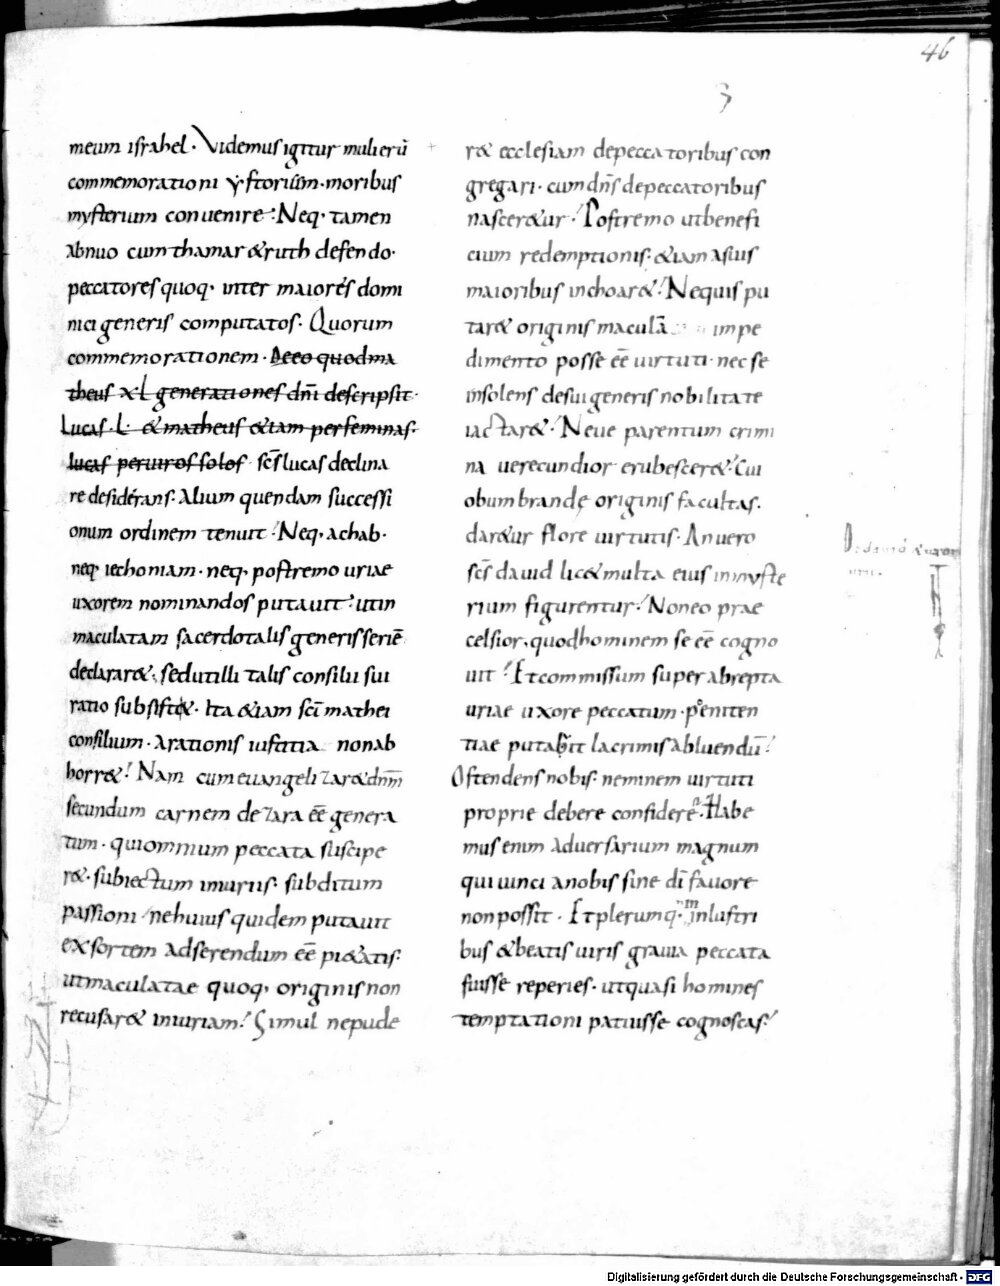 46
3
meum israhel · Videmus igitur mulierū
commemorationi ystoriūm · moribus
mysterium conuenire · Neq· tamen
abnuo cum thamar & ruth defendo ·
peccatores quoq· inter maiores domi
nici generis computatos · Quorum
commemorationem · Deeo quod ma
theus xL generationes dn̄i descripsit ·
Lucas · L · & matheus & iam per feminas ·
lucas per uiros solos · sc̄s lucas declina
re desiderans · Alium quendam successi
onum ordinem tenuit · Neq· achab ·
neq· iechoniam · neq· postremo uriae
uxorem nominandos putauit · ut in
maculatam sacerdotalis generis seriē
declarar& · sed ut illi talis consilii sui
ratio subsist& · Ita & iam sc̄i mathei
consilium · a rationis iustitia non ab
horr& · Nam cum euangelizar& dnm̄
secundum carnem de zara eē genera
tum · qui omnium peccata suscipe
r& · subiectum iniuriis · subditum
passioni ne huius quidem putauit
exsortem adserendum eē pi&atis ·
ut maculatae quoq· originis non
recusar& iniuriam · Simul ne pude
r& ecclesiam de peccatoribus con
gregari · cum dn̄s de peccatoribus
nascer&ur · Postremo ut benefi
cium redemptionis · & iam a suis
maioribus inchoar& · Ne quis pu
tar& originis maculā impe
dimento posse eē uirtuti · nec se
insolens de sui generis nobilitate
iactar& · Neue parentum crimi
na uerecundior erubescer& · Cui
obumbrandę originis facultas ·
dar&ur flore uirtutis · An uero
sc̄s dauid lic& multa eius in myste
rium figurentur · Non eo prae
celsior · quod hominem se eē cogno
uit · Et commissum super abrepta
uriae uxore peccatum · peniten
tiae putabit lacrimis abluendū ·
Ostendens nobis · neminem uirtuti
proprie debere confidere · Habe
mus enim aduersarium magnum
qui uinci a nobis sine di̅ fauore
non possit · Et plerumq· in inlustri
bus & beatis uiris grauia peccata
fuisse reperies · ut quasi homines
temptationi patuisse cognoscas ·
Digitalisierung gefördert durch die Deutsche Forschungsgemeinschaft - DFG